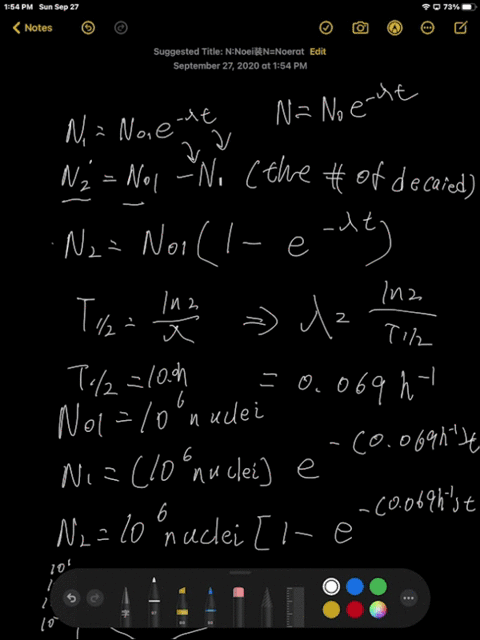 1:54 PM Sun Sep 27 73%
Notes
Suggested Title: N:Noei装N=Noerat Edit
September 27, 2020 at 1:54 PM
N₁ = N₀₁e^-λt N = N₀e^-λt
N₂ = N₀₁ - N₁ (the # of decaied)
N₂ = N₀₁(1 - e^-λt)
T1/2 = ln2/λ ⇒ λ = ln2/T1/2
T1/2 = 10.0h = 0.069h⁻¹
N₀₁ = 10⁶ nuclei
N₁ = (10⁶ nuclei) e^-(0.069h⁻¹)t
N₂ = 10⁶ nuclei [1 - e^-(0.069h⁻¹)t